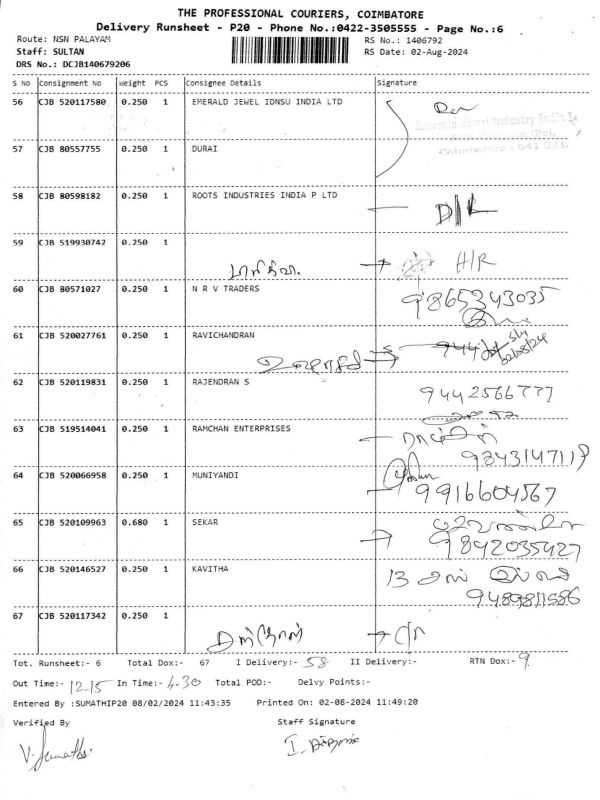 THE PROFESSIONAL COURIERS, COIMBATORE
Delivery Runsheet - P20 - Phone No.:0422-3505555 - Page No.:6
Route: NSN PALAYAM RS No.: 1406792
Staff: SULTAN RS Date: 02-Aug-2024
DRS No.: DCJB140679206
S No Consignment No Weight PCS Consignee Details Signature
56 CJB 520117580 0.250 1 EMERALD JEWEL IDNSU INDIA LTD
Emerald Jewel Industry India L
Coimbatore - 641 031
57 CJB 80557755 0.250 1 DURAI
58 CJB 80598182 0.250 1 ROOTS INDUSTRIES INDIA P LTD D/L
59 CJB 519930742 0.250 1
H/R
60 CJB 80571027 0.250 1 N R V TRADERS 9865343035
61 CJB 520027761 0.250 1 RAVICHANDRAN
02/08/24
62 CJB 520119831 0.250 1 RAJENDRAN S 9442566777
63 CJB 519514041 0.250 1 RAMCHAN ENTERPRISES
64 CJB 520066958 0.250 1 MUNIYANDI 9916604567
65 CJB 520109963 0.680 1 SEKAR
9842035427
66 CJB 520146527 0.250 1 KAVITHA
9489811586
67 CJB 520117342 0.250 1
Tot. Runsheet:- 6 Total Dox:- 67 I Delivery:- 58 II Delivery:- RTN Dox:- 9
Out Time:- 12.15 In Time:- 4.30 Total POD:- Delvy Points:-
Entered By :SUMATHIP20 08/02/2024 11:43:35 Printed On: 02-08-2024 11:49:20
Verified By Staff Signature
V. Sumathi